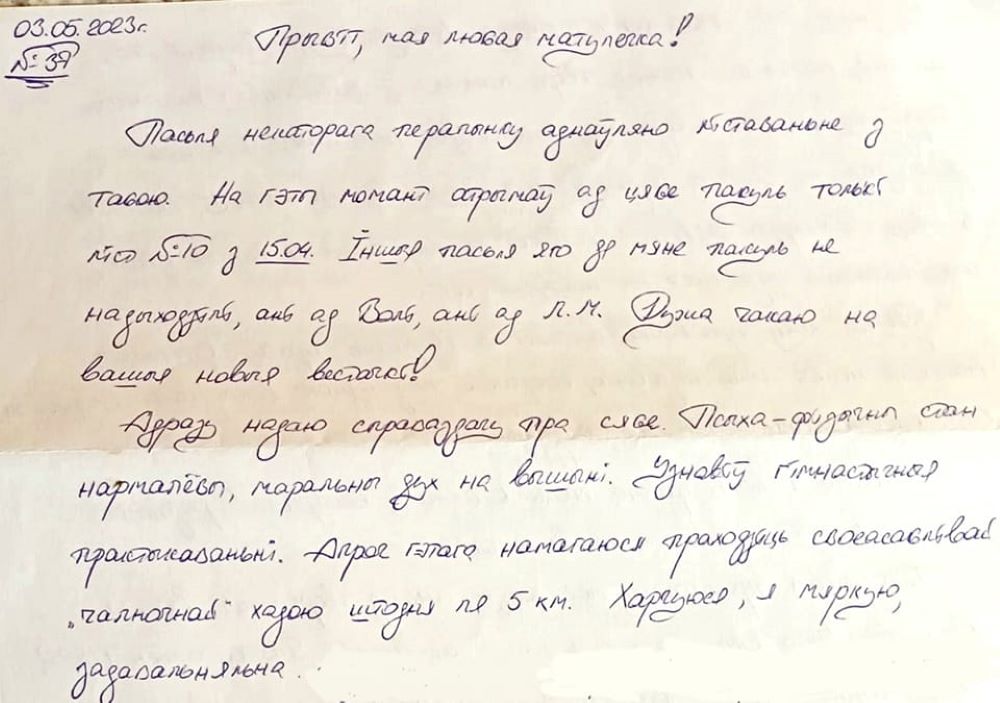 03.05.2023г.
№ 37
Прывіт, мая любая матулечка!
Пасьля некаторага перапынку аднаўляю ліставаньне з
табою. На гэты момант атрымаў ад цябе пакуль толькі
ліст №10 з 15.04. Іншыя пасьля яго да мяне пакуль не
надыходзілі, ані ад Волі, ані ад Л.М. Дужа чакаю на
вашыя новыя вестачкі!
Адразу надаю справаздачу пра сябе. Псыха-фізычны стан
нармалёвы, маральны дух на вышыні. Узнавіў гімнастычныя
практыкаваньні. Апроч гэтага намагаюся праходзіць своеасаблівай
„чалночнай“ хадою штодня па 5 км. Харчуюся, я мяркую,
задавальняльна.